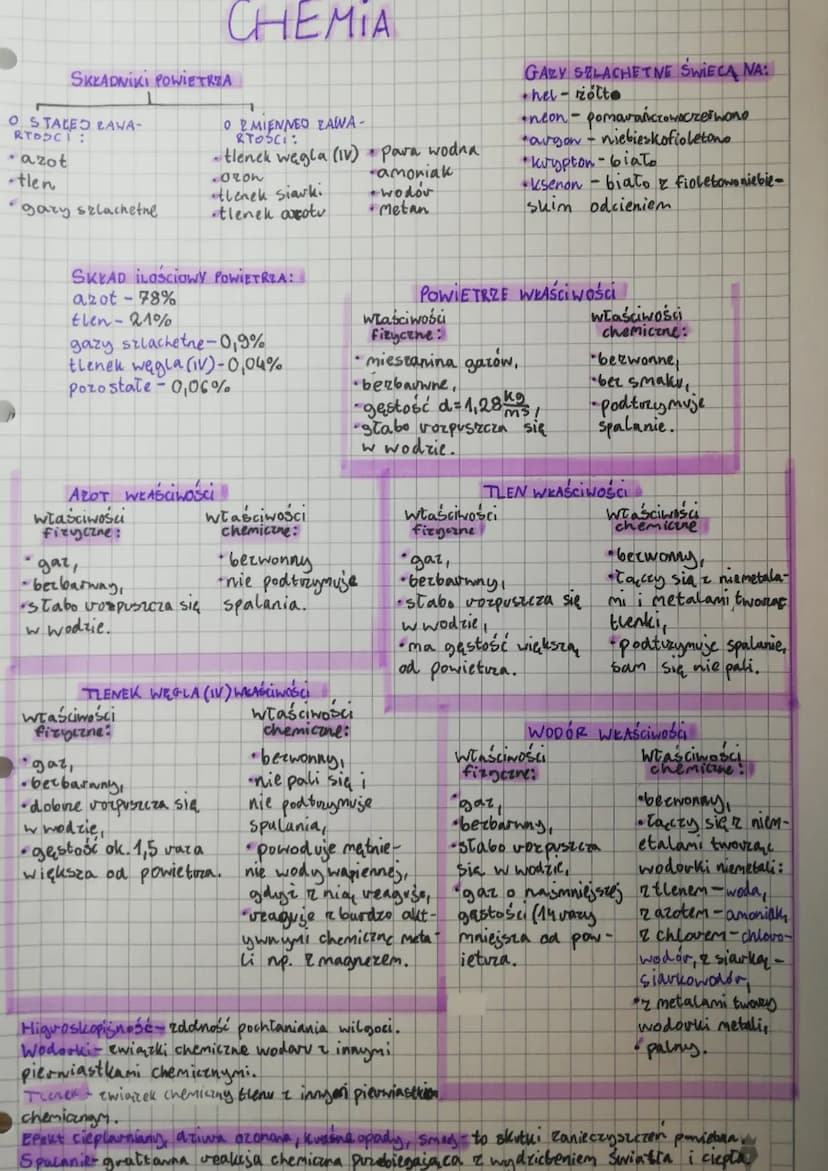 CHEMIA
SKŁADNIKI POWIETRZA
O STAŁEJ ZAWA-
RTOŚCI:
• azot
• tlen
• gazy szlachetne
O ZMIENNEJ ZAWA-
RTOŚCI:
• tlenek węgla (IV)
• ozon
• tlenek siarki
• tlenek azotu
• para wodna
• amoniak
• wodór
• metan
GAZY SZLACHETNE ŚWIECĄ NA:
• hel - żółto
• neon - pomarańczowoczerwono
• argon - niebieskofioletowo
• krypton - biało
• ksenon - biało z fioletowoniebie-
skim odcieniem
SKŁAD ILOŚCIOWY POWIETRZA:
azot - 78%
tlen - 21%
gazy szlachetne - 0,9%
tlenek węgla (IV) - 0,04%
pozostałe - 0,06%
POWIETRZE WŁAŚCIWOŚCI
właściwości
fizyczne:
• mieszanina gazów,
• bezbarwne,
• gęstość d=1,28 kg/m3,
• słabo rozpuszcza się
w wodzie.
właściwości
chemiczne:
• bezwonne,
• bez smaku,
• podtrzymuje
spalanie.
AZOT WŁAŚCIWOŚCI
właściwości
fizyczne:
• gaz,
• bezbarwny,
• słabo rozpuszcza się
w wodzie.
właściwości
chemiczne:
• bezwonny
• nie podtrzymuje
spalania.
TLEN WŁAŚCIWOŚCI
właściwości
fizyczne
• gaz,
• bezbarwny,
• słabo rozpuszcza się
w wodzie,
• ma gęstość większą
od powietrza.
właściwości
chemiczne
• bezwonny,
• łączy się z niemetala-
mi i metalami tworząc
tlenki,
• podtrzymuje spalanie,
sam się nie pali.
TLENEK WĘGLA (IV) WŁAŚCIWOŚCI
właściwości
fizyczne:
• gaz,
• bezbarwny,
• dobrze rozpuszcza się
w wodzie,
• gęstość ok. 1,5 raza
większa od powietrza.
właściwości
chemiczne:
• bezwonny,
• nie pali się i
nie podtrzymuje
spalania,
• powoduje mętnie-
nie wody wapiennej,
gdyż z nią reaguje,
• reaguje z bardzo akt-
ywnymi chemiczne meta-
li np. z magnezem.
WODÓR WŁAŚCIWOŚCI
właściwości
fizyczne:
• gaz,
• bezbarwny,
• słabo rozpuszcza
się w wodzie,
• gaz o najmniejszej
gęstości (14 razy
mniejsza od pow-
ietrza.
właściwości
chemiczne:
• bezwonny,
• łączy się z niem-
etalami tworząc
wodorki niemetali:
z tlenem - woda,
z azotem - amoniak,
z chlorem - chloro-
wodór, z siarką -
siarkowodór,
• z metalami tworzy
wodorki metali,
• palny.
Higroskopijność - zdolność pochłaniania wilgoci.
Wodorki - związki chemiczne wodoru z innymi
pierwiastkami chemicznymi.
Tlenek - związek chemiczny tlenu z innym pierwiastkiem
chemicznym.
Efekt cieplarniany, dziura ozonowa, kwaśne opady, smog - to skutki zanieczyszczeń powietrza.
Spalanie - reakcja chemiczna przebiegająca z wydzieleniem światła i ciepła.